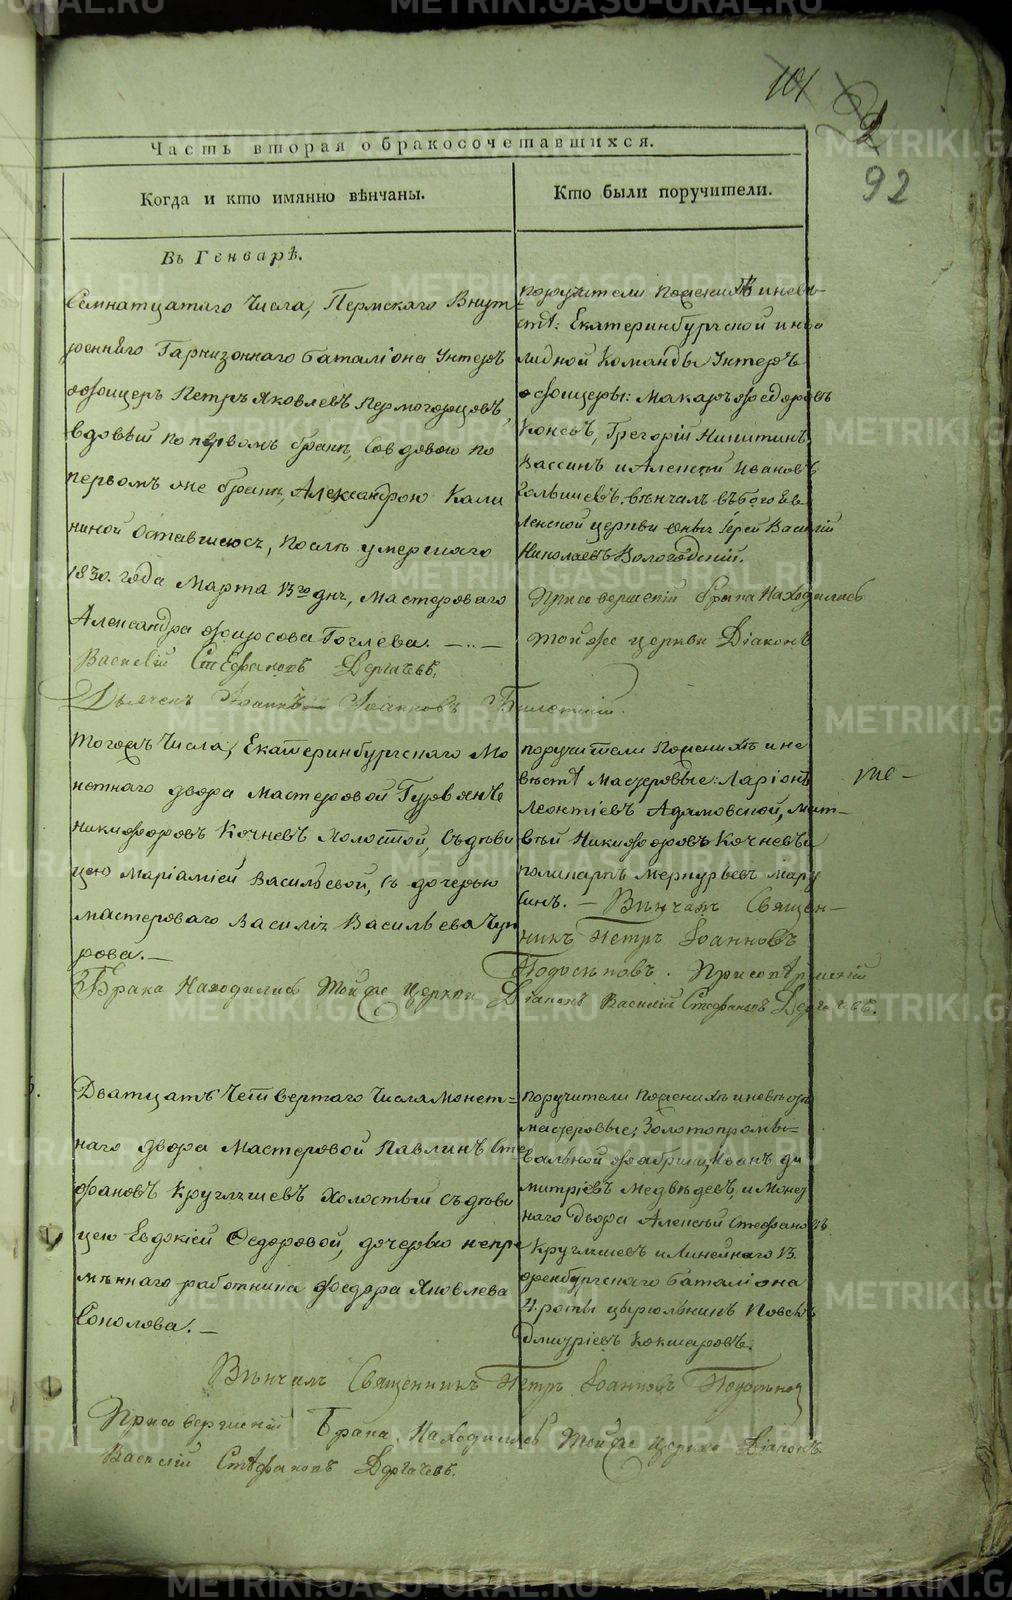 101
2
92
Часть вторая о бракосочетавшихся.
Когда и кто имянно вѣнчаны.
Кто были поручители.
Въ Генварѣ.
Семнатцатаго Числа, Пермскаго Внут
реннѣго Гарнизоннаго баталіона Унтеръ
офицеръ Петръ Яковлевъ Пермогорцовъ,
вдовый по первомъ бракѣ, Совдовою по
первомъ же бракѣ, Александрою Кали
ниной Оставшеюсъ, послѣ умершаго
1830. года Марта 13го дня, Мастероваго
Александра Фирсова Гоглева.
Василій Стефановъ Дергачевъ.
Дьячекъ Іоаннъ Іоанновъ
поручители по женихѣ и невѣ
стѣ: Екатеринбургской инва
лидной Команды Унтеръ
офицеры: Макаръ Федоровъ
Григорій Никитинъ
Вассинъ и Алексѣй Ивановъ
Голышевъ, вѣнчалъ въ богояв
ленской церкви оныхъ Іерей Василій
Николаевъ Вологодскій.
При совершеніи брака Находились
той же церкви Діаконъ
Тогожъ Числа, Екатеринбургскаго Мо
нетнаго двора Мастеровой
Никифоровъ Кочневъ Холостой, Съ дѣви
цею Маріамією Васильевой, съ дочерью
мастероваго Василія Васильева Чуп
рова.
поручители По женихѣ и не
вѣстѣ Мастеровые: Ларіонъ
Леонтіевъ Адамовской, Мат-
вѣй Никифоровъ Кочневъ и
поликарпъ Меркурьевъ Мару
синъ. — Вѣнчалъ Священ-
никъ Петръ Іоанновъ
При совершеніи
Брака Находились Той же Церкви Діаконъ Василій Стефановъ Дергачевъ.
Дватцать Четвертаго Числа Монет=
наго двора Мастеровой Павлинъ Сте
фановъ Круглышевъ Холостый Съ дѣви
цею Евдокіей Федоровой, дочерью непре
мѣннаго работника Федора Яковлева
Соколова.
поручители По женихѣ и невѣстѣ
мастеровые; Золотопромы=
вальной фабрики, Иванъ ди
митріевъ Медвѣдевъ, и Монет
наго двора Алексѣй Стефановъ
Круглышев и Линейнаго 13.
Оренбургскаго баталіона
4. роты цырюльникъ
Дмитріевъ Кокшаровъ.
Вѣнчалъ Священникъ Петръ Іоанновъ
При совершеніи Брака Находились Той же церкви Діаконъ
Василій Стефановъ Дергачевъ.